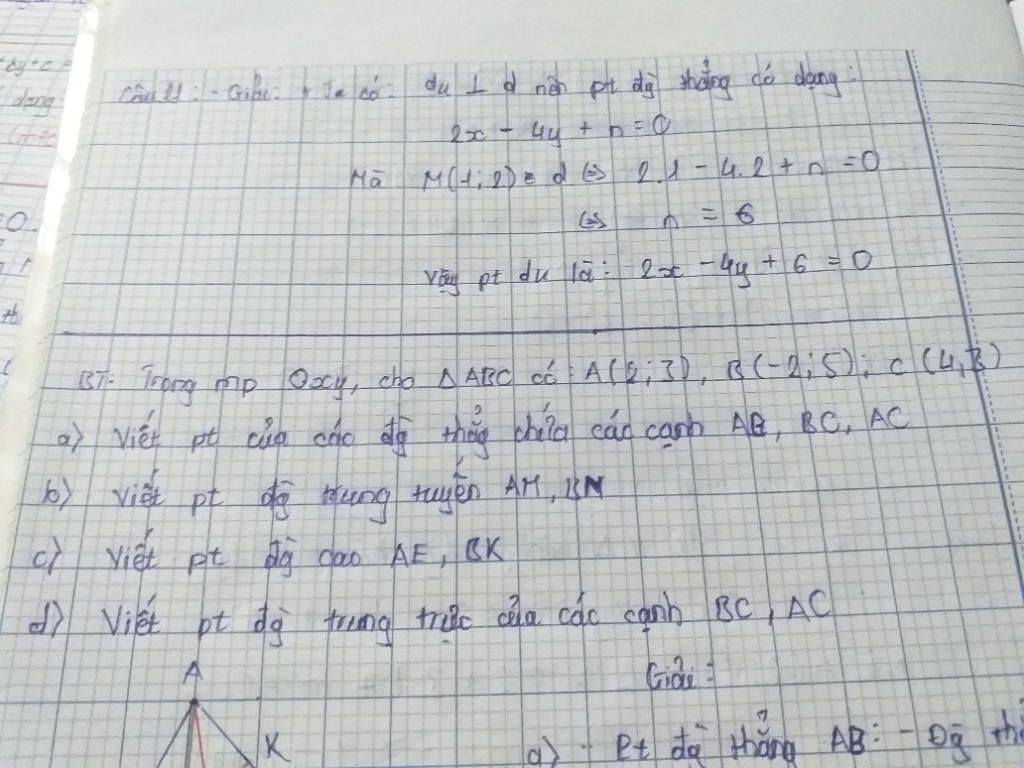 Δy + c =
dạng
Câu 11: - Giải: + Ta có: du ⊥ d nên pt đg thẳng có dạng:
2x - 4y + n = 0
Mà M(1;2) ∈ d ⇔ 2.1 - 4.2 + n = 0
⇔ n = 6
Vậy pt du là: 2x - 4y + 6 = 0
BT: Trong mp Oxy, cho ΔABC có: A(2;3), B(-2;5); C(4,3)
a) Viết pt của các đg thẳg chứa các cạnh AB, BC, AC
b) Viết pt đg trung tuyến AM, BN
c) Viết pt đg cao AE, BK
d) Viết pt đg trung trực của các cạnh BC, AC
Giải:
A
K
a) - Pt đg thẳng AB: - Đg